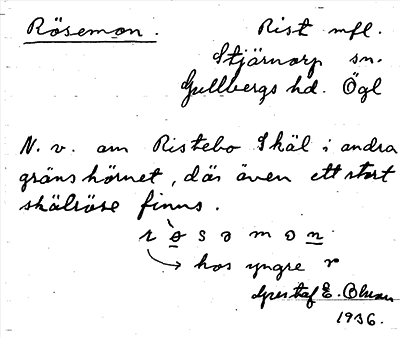 Rösemon.
Rist mfl.
Stjärnorp sn.
Gullbergs hd. Ögl
N. v. om Ristebo Skäl i andra
gränshörnet, där även ett stort
skälröse finns.
r ɵ s ə m ɔ n
hos yngre r
Gustaf E. Olsson
1936.